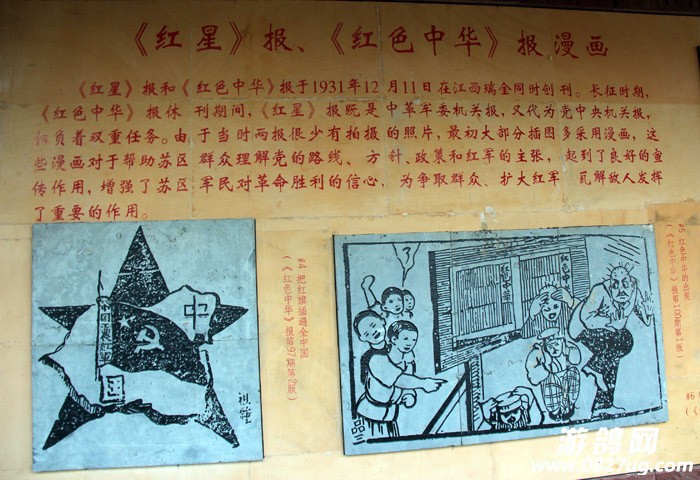 《红星》报、《红色中华》报漫画
《红星》报和《红色中华》报于1931年12月11日在江西瑞金同时创刊。长征时期，
《红色中华》报休刊期间，《红星》报既是中革军委机关报，又代为党中央机关报，
担负着双重任务。由于当时两报很少有拍摄的照片，最初大部分插图多采用漫画，这
些漫画对于帮助苏区群众理解党的路线、方针、政策和红军的主张，起到了良好的宣
传作用，增强了苏区军民对革命胜利的信心，为争取群众、扩大红军、瓦解敌人发挥
了重要的作用。
中国
祺钟
#4 把红旗插遍全中国
（《红色中华》报第97期第2版）
红色中华
红色中华
品三
#5 红色中华的出现
（《红色中华》报第100期第1版）
#6
（《
游鸽网
www.0827ug.com